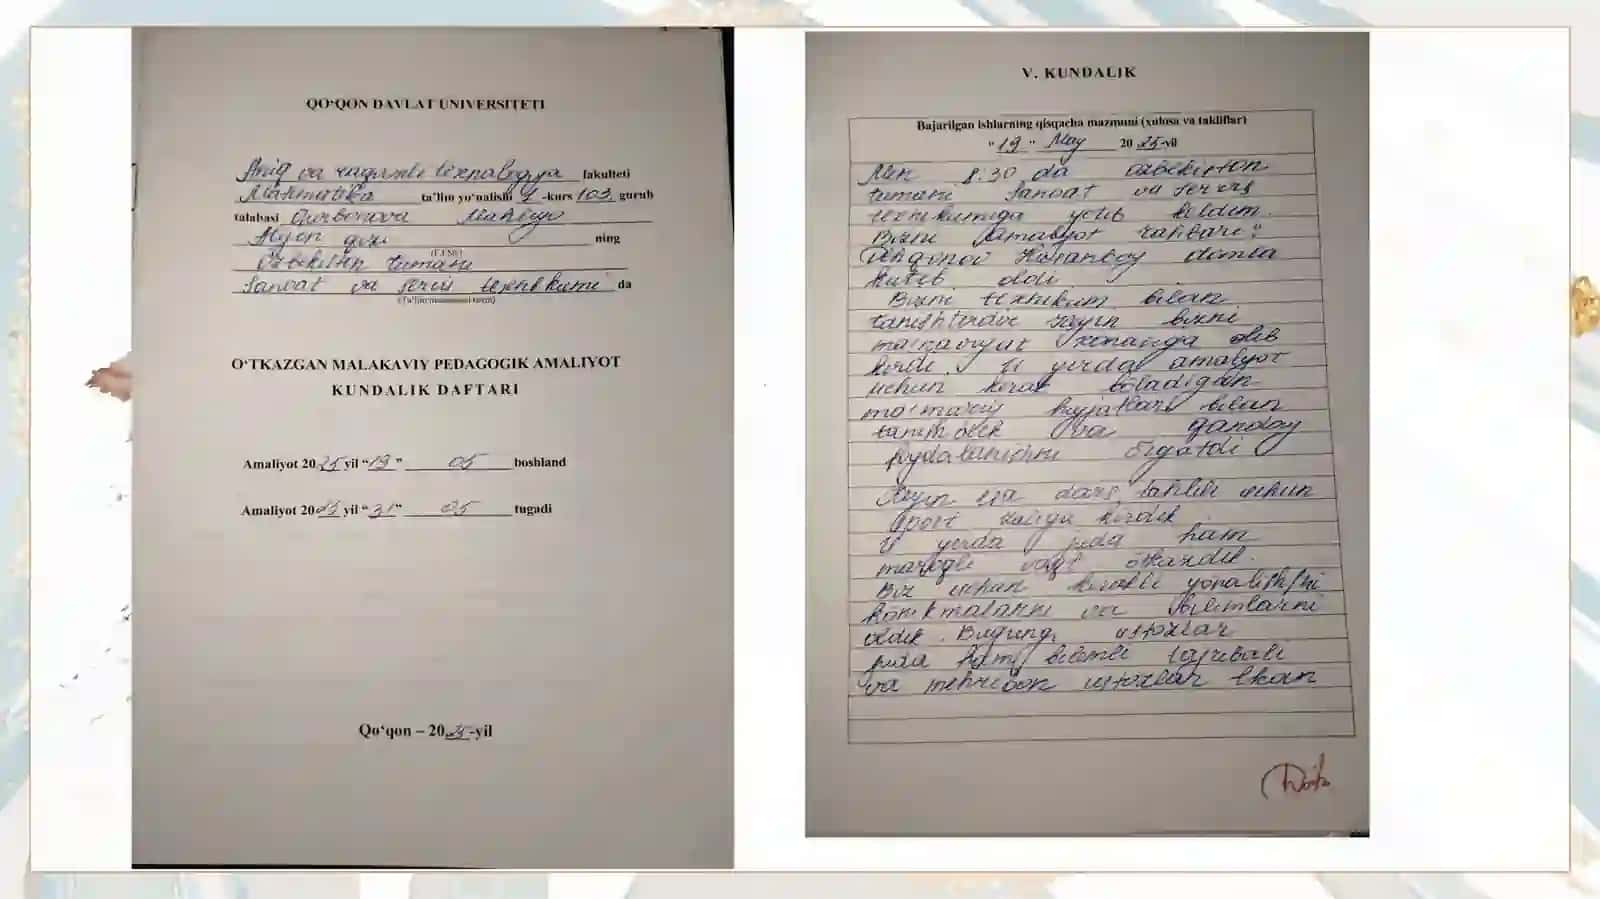 QO‘QON DAVLAT UNIVERSITETI
Aniq va raqamli texnalogiya fakulteti
Matematika ta’lim yo‘nalishi 1 -kurs 103 guruh
talabasi Qurbonova
qizi ning
(F.I.Sh)
Ozbekiston tumani
Sanoat va servis texnikumi da
(Ta’lim muassasasi nomi)
O‘TKAZGAN MALAKAVIY PEDAGOGIK AMALIYOT
KUNDALIK DAFTARI
Amaliyot 2025 yil “19” 05 boshland
Amaliyot 2025 yil “31” 05 tugadi
Qo‘qon – 2025-yil
V. KUNDALIK
Bajarilgan ishlarning qisqacha mazmuni (xulosa va takliflar)
“19” May 2025-yil
Men 8:30 da ozbekiston
tumani Sanoat va servis
texnikumiga yetib keldim.
Bizni amalyot rahbari
domla
kutib oldi
Bizni texnikum bilan
tanishtirdi bizni
ma'naviyat xonasiga olib
kirdi. U yerda amalyot
uchun kerak boladigan
me'moriy hujjatlari bilan
va qanday
foydalanishni orgatdi
Keyin esa dars tahlili uchun
sport zaliga kirdik
U yerda juda ham
maroqli vaqt otkazdik.
Biz uchun kerakli
konikmalarni va bilimlarni
oldik. ustozlar
juda ham bilimli tajribali
va mehribon ustozlar ekan